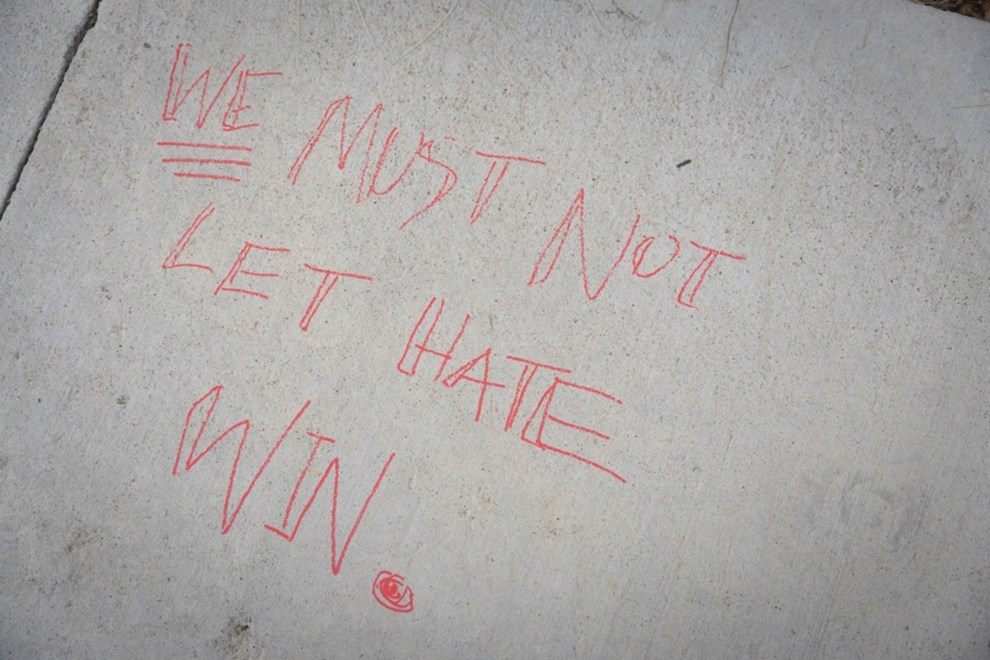 WE MUST NOT
LET HATE
WIN.